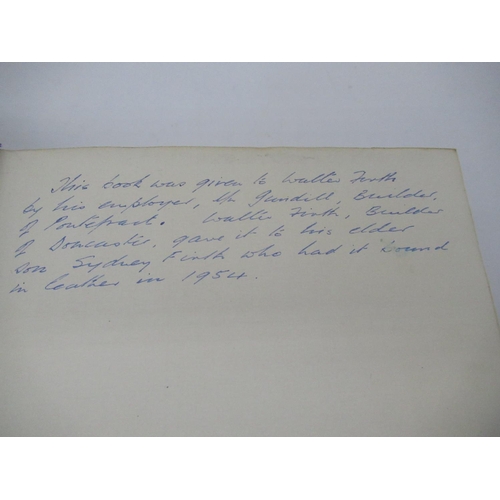 This book was given to Walter Firth
by his employer, Mr Gundill, Builder,
of Pontefract. Walter Firth, Builder
of Doncaster, gave it to his elder
son Sydney Firth who had it bound
in leather in 1954.